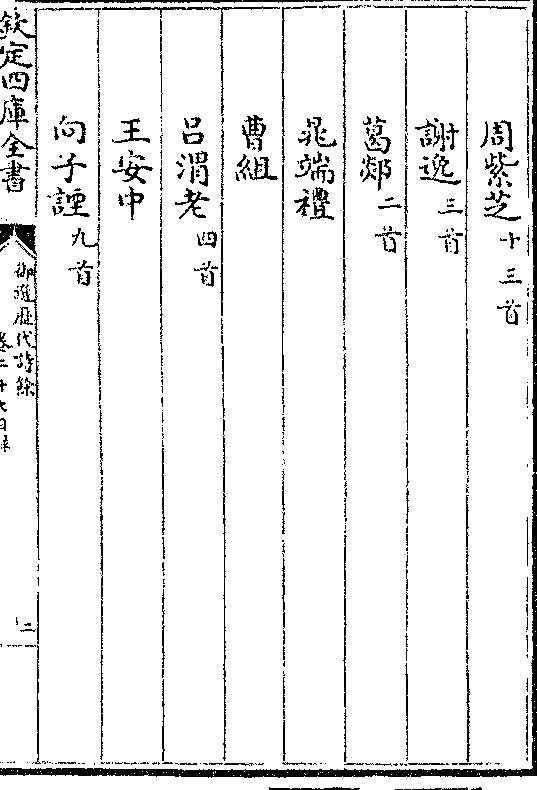 周紫芝十三首
謝逸三首
葛郯二首
晁端禮
曹組
呂渭老四首
王安中
向子諲九首
欽定四庫全書
御選歷代詩餘
卷二十六目錄
二